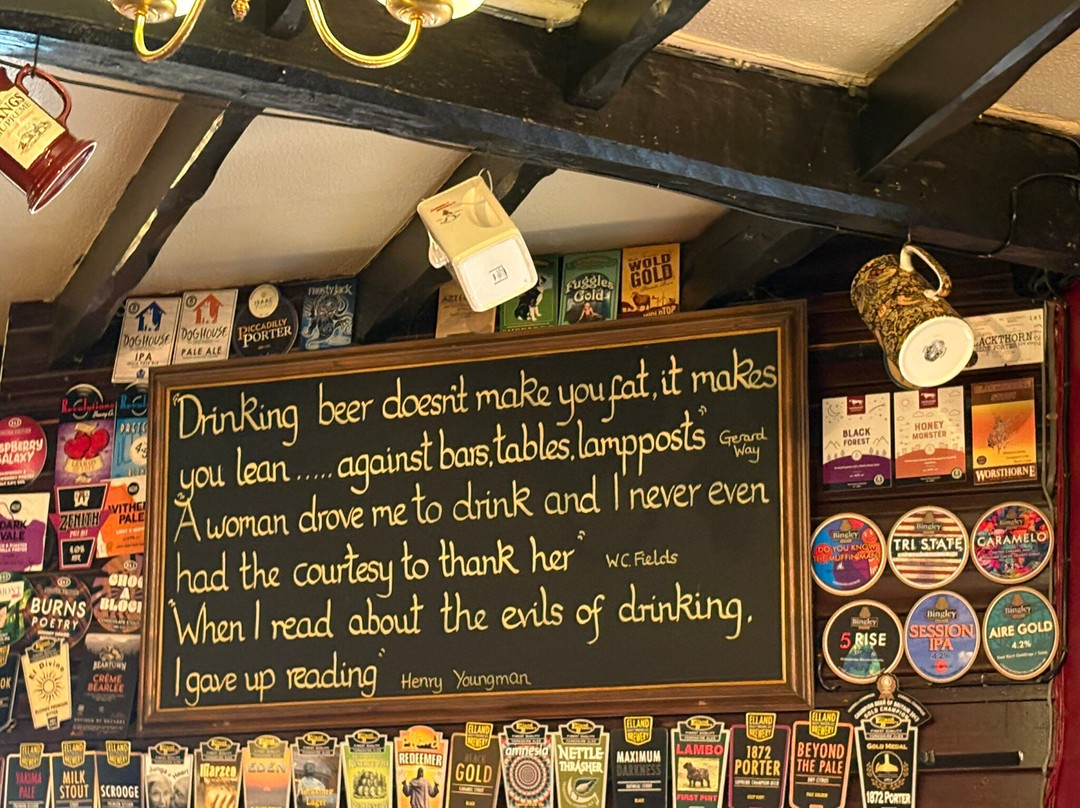 DOGHOUSE
IPA
DOGHOUSE
PALE ALE
PICCADILLY
PORTER
Fuggles
Gold
WOLD
GOLD
"Drinking beer doesn't make you fat, it makes
you lean ..... against bars, tables, lampposts" Gerard
Way
"A woman drove me to drink and I never even
had the courtesy to thank her" W.C. Fields
"When I read about the evils of drinking,
I gave up reading" Henry Youngman
Revolutions
ZENITH
BURNS
POETRY
El Divino
BEARTOWN
CRÈME
BEARLÉE
BLACK
FOREST
HONEY
MONSTER
WORSTHORNE
Bingley
DO YOU KNOW
THE MUFFIN MAN
Bingley
TRI STATE
Bingley
CARAMELO
Bingley
5 RISE
Bingley
SESSION
IPA
4.2%
Bingley
AIRE GOLD
4.2%
ELLAND
BREWERY
YAKIMA
PALE
ELLAND
BREWERY
MILK
STOUT
ELLAND
BREWERY
SCROOGE
Marzen
EDEN
Lager
REDEEMER
ELLAND
BREWERY
GOLD
amnesia
NETTLE
THRASHER
ELLAND
BREWERY
MAXIMUM
DARKNESS
LAMBO
FIRST PINT
ELLAND
BREWERY
1872
PORTER
ELLAND
BREWERY
BEYOND
THE PALE
GOLD MEDAL
1872 PORTER